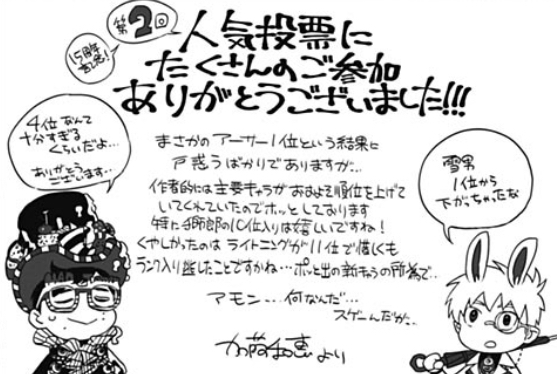 第2回
15周年記念!
人気投票に
たくさんのご参加
ありがとうございました!!!
4位なんて
十分すぎる
くらいだよ…
ありがとう
ございます…
まさかのアーサー1位という結果に
戸惑うばかりでありますが…
作者的には主要キャラがおおよそ順位を上げて
いてくれていたのでホッとしております
特に獅郎の10位入りは嬉しいですね!
くやしかったのはライトニングが11位で惜しくも
ランク入り逃したことですかね…ポッと出の新キャラの所為で…
アモン…何なんだ…
スゲーんだが…
加藤和恵より
雪男
1位から
下がっちゃったな